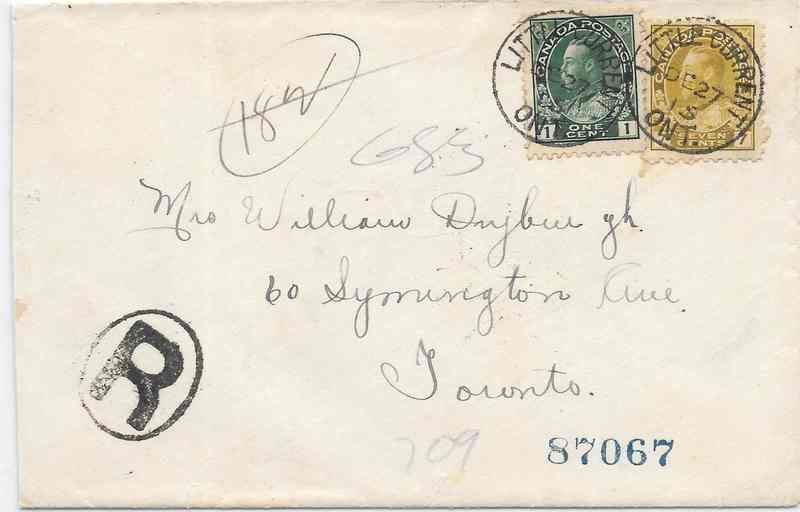 CANADA POSTAGE
1 ONE CENT 1
CANADA POSTAGE
SEVEN CENTS
LITTLE CURRENT
ONT.
LITTLE CURRENT
DE 27
13
ONT.
18W
683
Mrs William
60 Symington Ave
Toronto.
R
709
87067